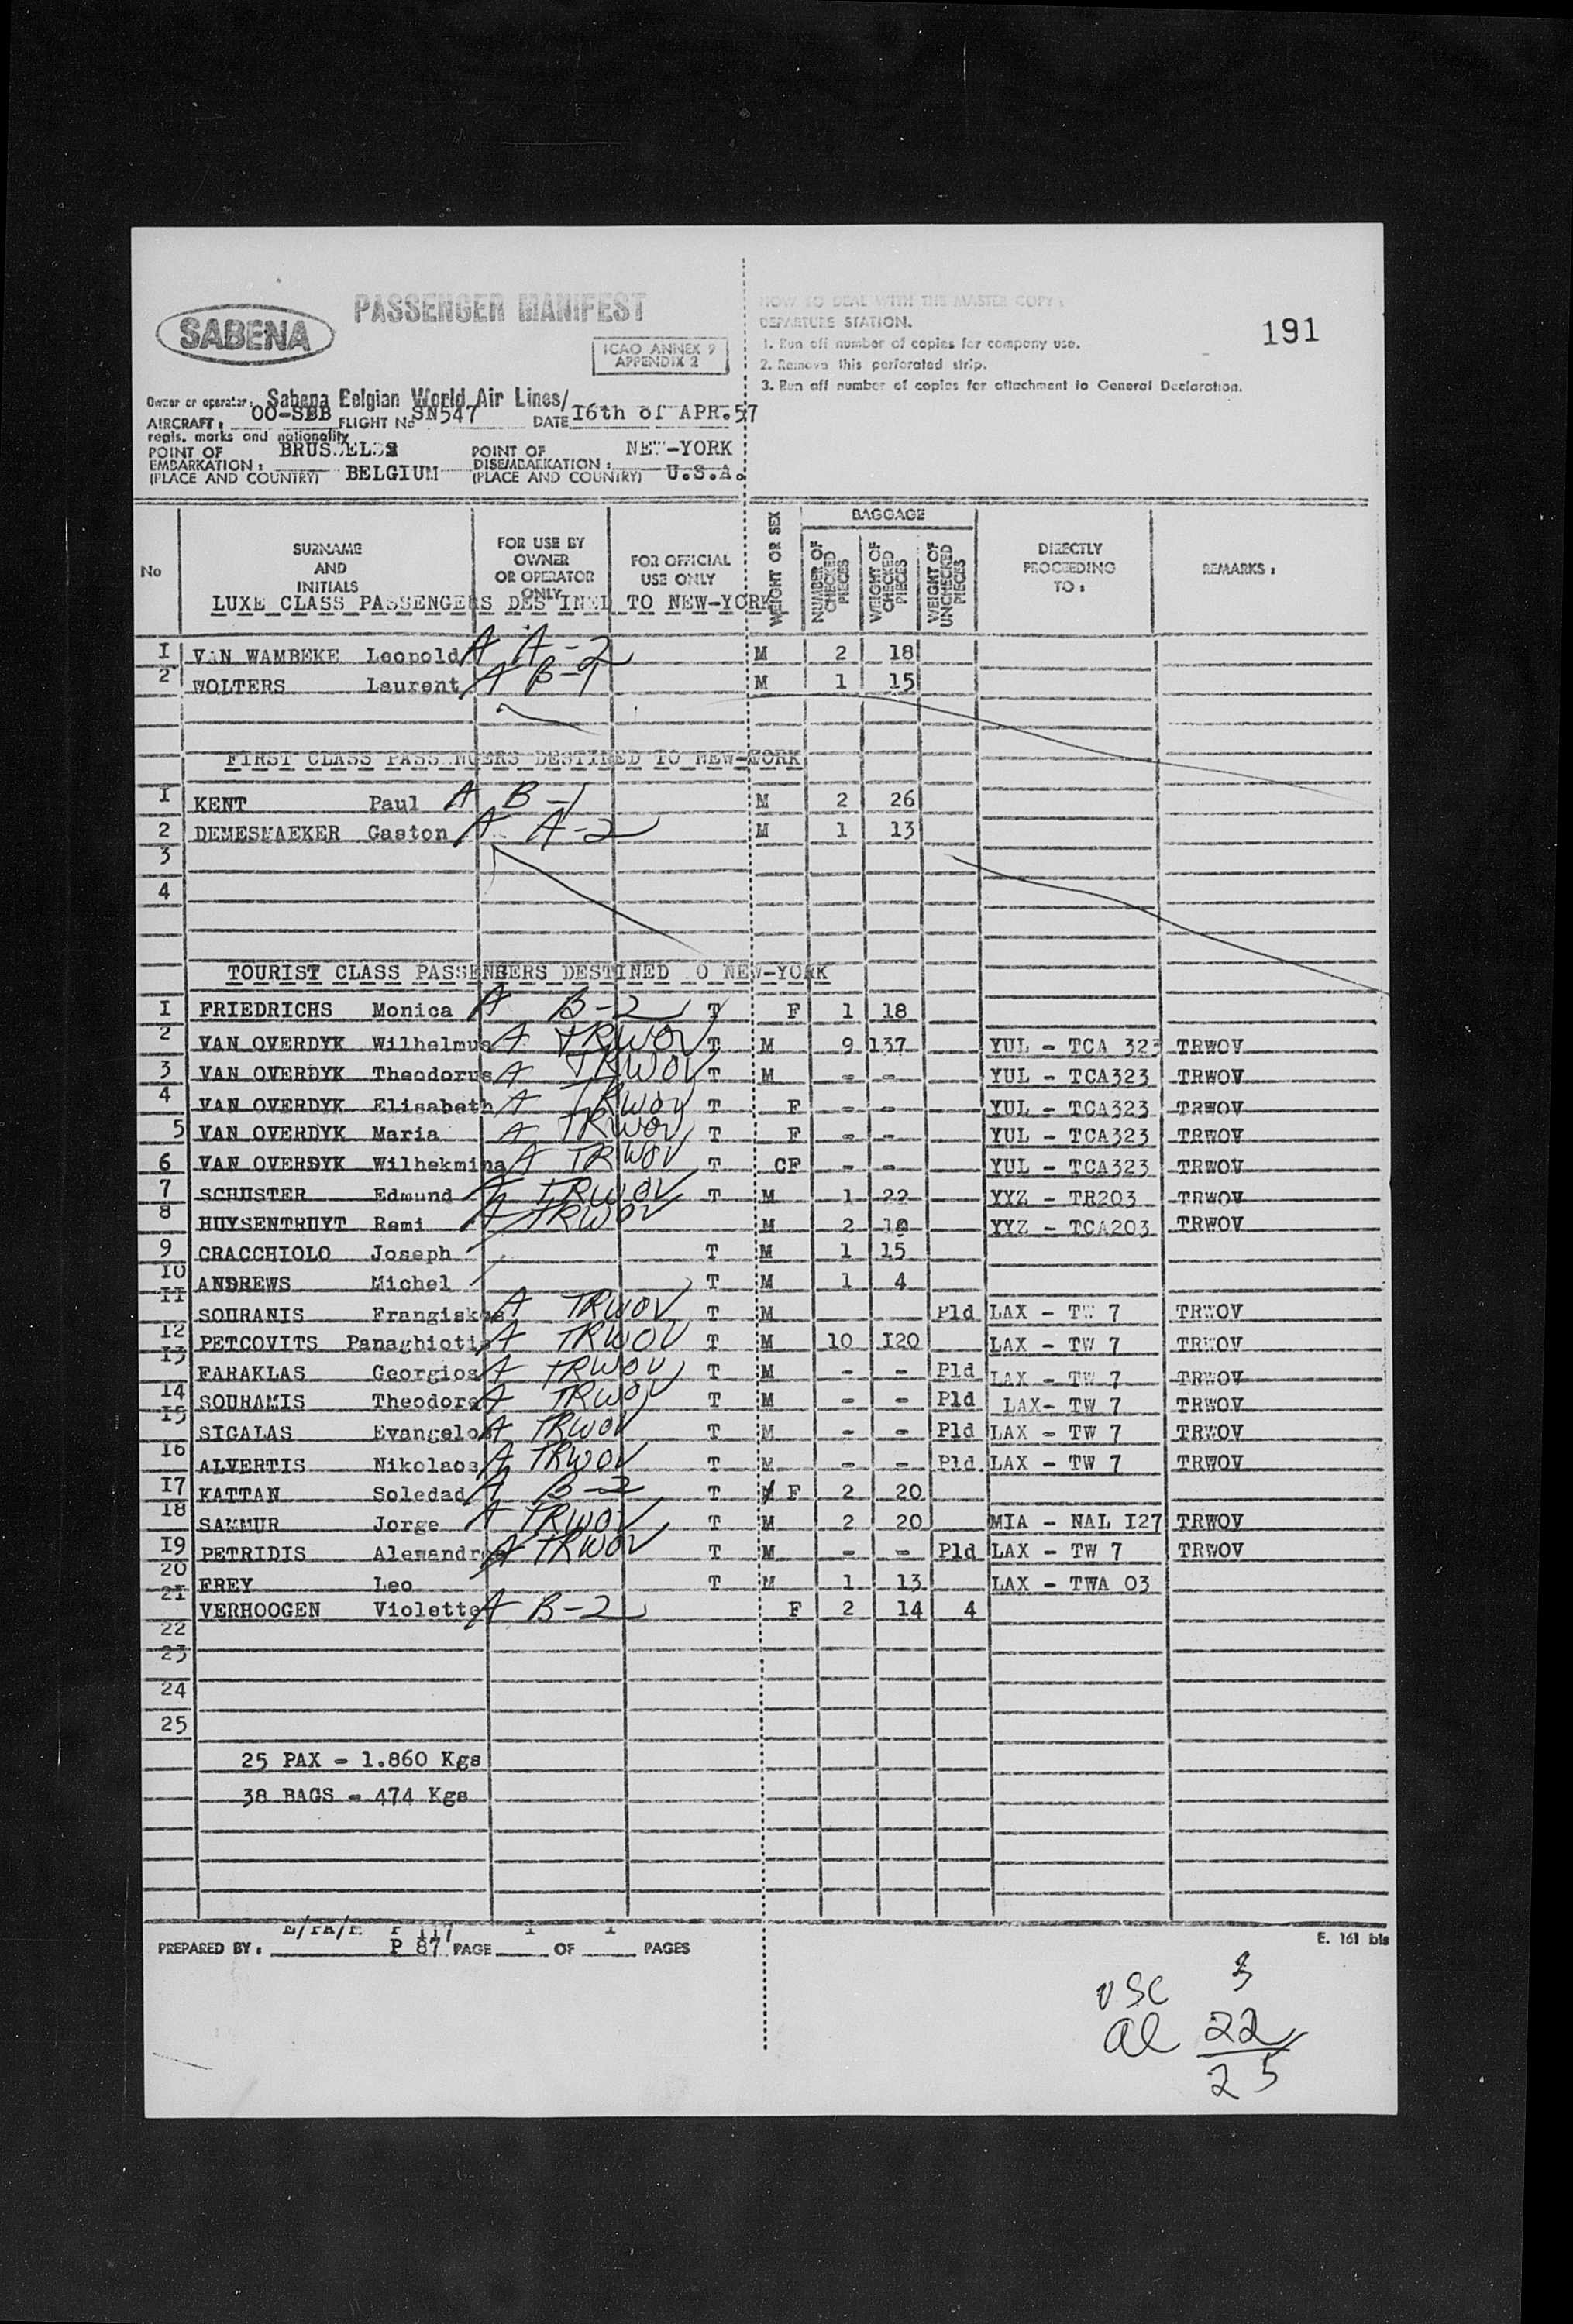 SABENA
PASSENGER MANIFEST
ICAO ANNEX 9
APPENDIX 2
HOW TO DEAL WITH THE MASTER COPY :
DEPARTURE STATION.
1. Run off number of copies for company use.
2. Remove this perforated strip.
3. Run off number of copies for attachment to General Declaration.
191
Owner or operator: Sabena Belgian World Air Lines/
AIRCRAFT: OO-SBB FLIGHT No SN547 DATE I6th of APR.57
regis. marks and nationality
POINT OF EMBARKATION : (PLACE AND COUNTRY) BRUSSELS BELGIUM
POINT OF DISEMBARKATION : (PLACE AND COUNTRY) NEW-YORK U.S.A.
No
SURNAME AND INITIALS
FOR USE BY OWNER OR OPERATOR ONLY
FOR OFFICIAL USE ONLY
WEIGHT OR SEX
BAGGAGE
NUMBER OF CHECKED PIECES
WEIGHT OF CHECKED PIECES
WEIGHT OF UNCHECKED PIECES
DIRECTLY PROCEEDING TO :
REMARKS :
LUXE CLASS PASSENGERS DES INED TO NEW-YORK
I VAN WAMBEKE Leopold A A-2 M 2 18
2 WOLTERS Laurent A B-1 M 1 15
FIRST CLASS PASS NGERS DESTINED TO NEW-YORK
I KENT Paul A B-1 M 2 26
2 DEMESMAEKER Gaston A A-2 M 1 13
3
4
TOURIST CLASS PASSENGERS DESTINED O NEW-YORK
I FRIEDRICHS Monica A B-2 T F 1 18
2 VAN OVERDYK Wilhelmus A TRWOV T M 9 137 YUL - TCA 323 TRWOV
3 VAN OVERDYK Theodorus A TRWOV T M - - YUL - TCA323 TRWOV
4 VAN OVERDYK Elisabeth A TRWOV T F - - YUL - TCA323 TRWOV
5 VAN OVERDYK Maria A TRWOV T F - - YUL - TCA323 TRWOV
6 VAN OVERDYK Wilhekmina A TRWOV T CF - - YUL - TCA323 TRWOV
7 SCHUSTER Edmund A TRWOV T M 1 22 YYZ - TR203 TRWOV
8 HUYSENTRUYT Remi A TRWOV M 2 YYZ - TCA203 TRWOV
9 CRACCHIOLO Joseph T M 1 15
IO ANDREWS Michel T M 1 4
II SOURANIS Frangiskos A TRWOV T M Pld LAX - TW 7 TRWOV
I2 PETCOVITS Panaghiotis A TRWOV T M 10 I20 LAX - TW 7 TRWOV
I3 FARAKLAS Georgios A TRWOV T M - - Pld LAX - TW 7 TRWOV
I4 SOURAMIS Theodore A TRWOV T M - - Pld LAX- TW 7 TRWOV
I5 SIGALAS Evangelos A TRWOV T M - - Pld LAX - TW 7 TRWOV
I6 ALVERTIS Nikolaos A TRWOV T M - - Pld LAX - TW 7 TRWOV
I7 KATTAN Soledad A B-2 T F 2 20
I8 SAMMUR Jorge A TRWOV T M 2 20 MIA - NAL I27 TRWOV
I9 PETRIDIS Alemandros A TRWOV T M - - Pld LAX - TW 7 TRWOV
20 FREY Leo T M 1 13 LAX - TWA 03
2I VERHOOGEN Violette A B-2 F 2 14 4
22
23
24
25
25 PAX - 1.860 Kgs
38 BAGS - 474 Kgs
PREPARED BY : P 117 P 87 PAGE 1 OF 1 PAGES
E. 161 bis
USC 3
al 22
25